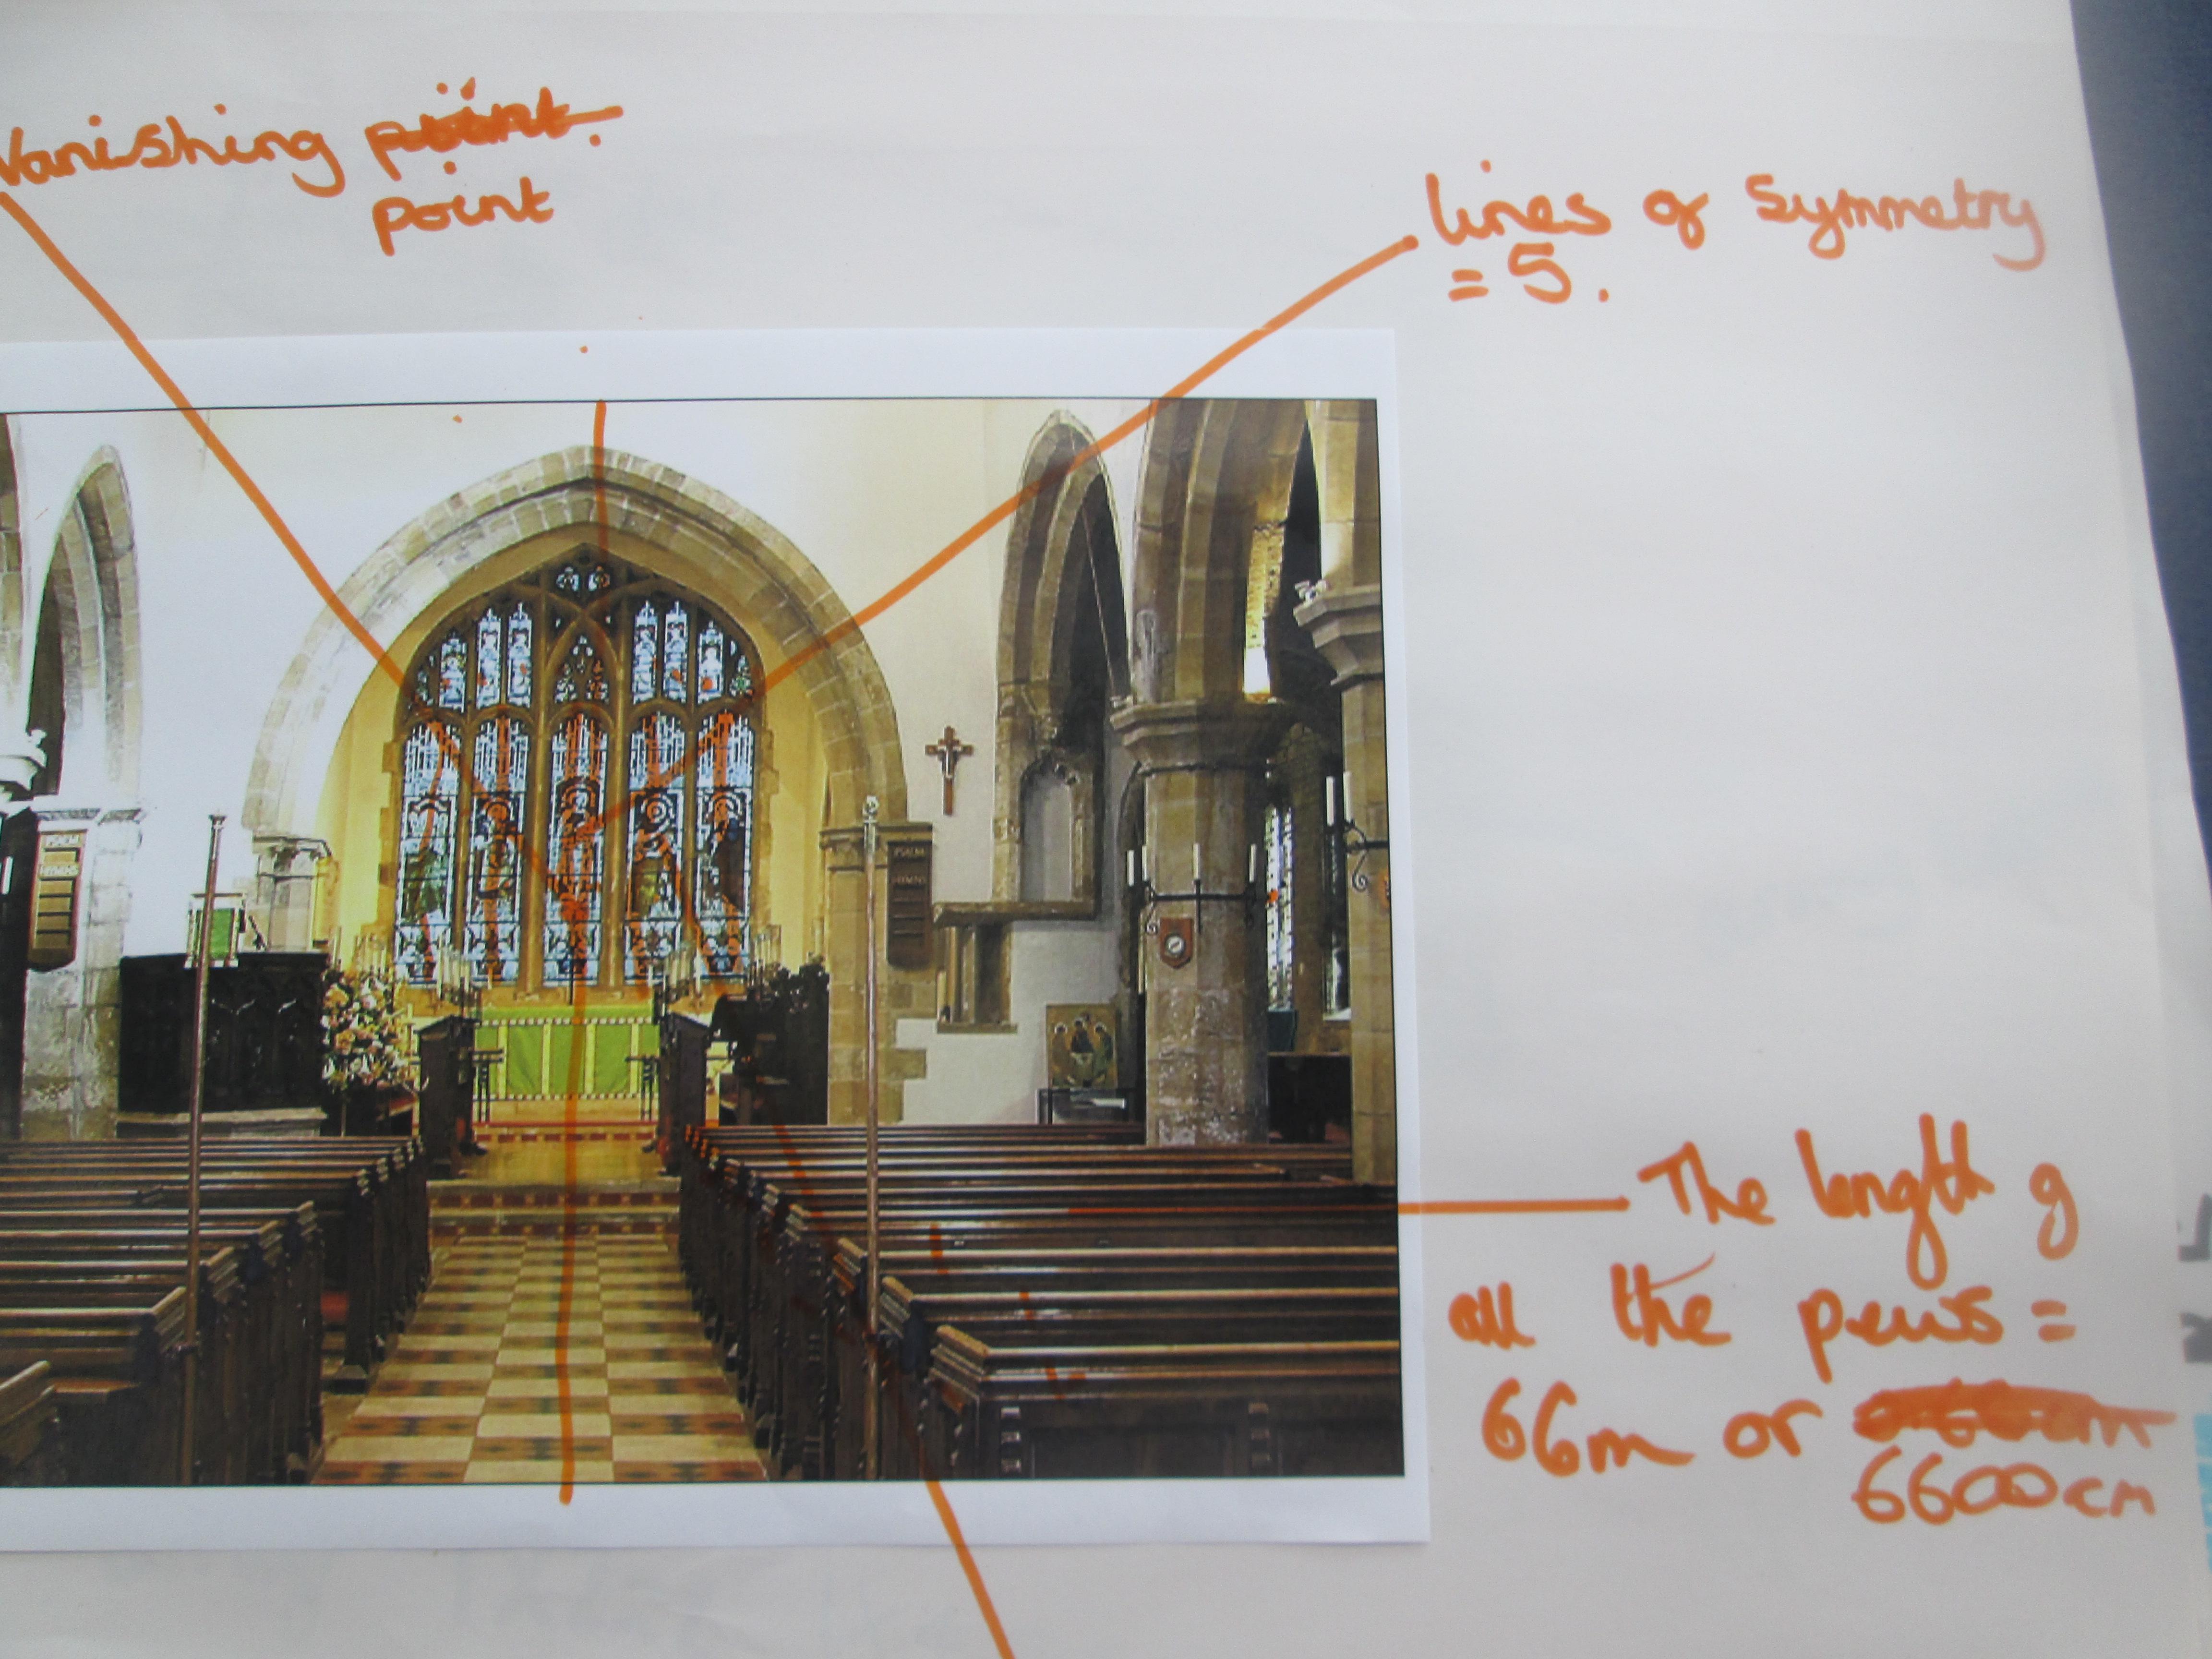 Vanishing point.
point
lines of Symmetry
= 5.
PSALM
HYMNS
PSALM
HYMNS
The length of
all the pews =
66m or
6600cm